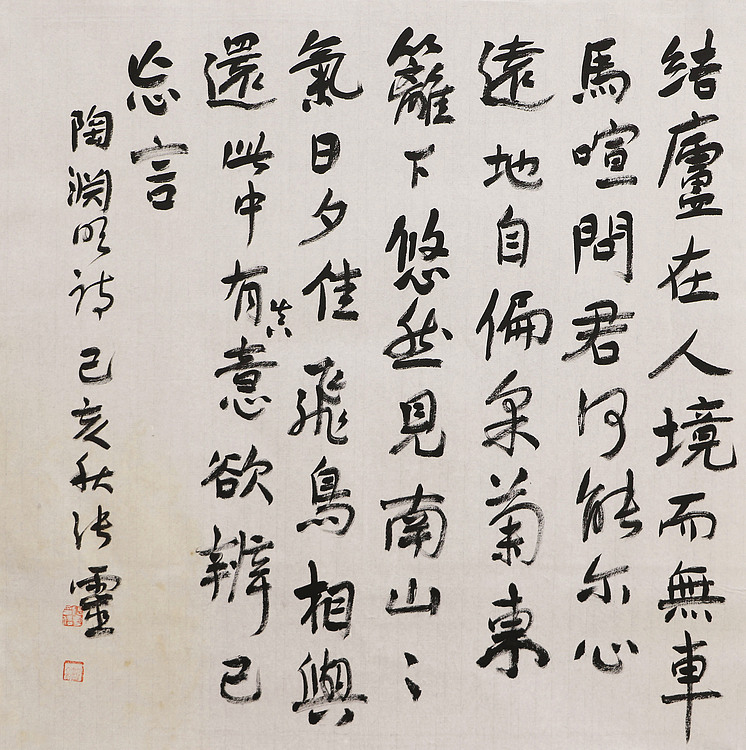 結廬在人境而無車
馬喧問君何能尔心
遠地自偏采菊東
籬下悠然見南山〻
氣日夕佳飛鳥相與
還此中有真意欲辨已
忘言
陶淵明詩己亥秋張靈